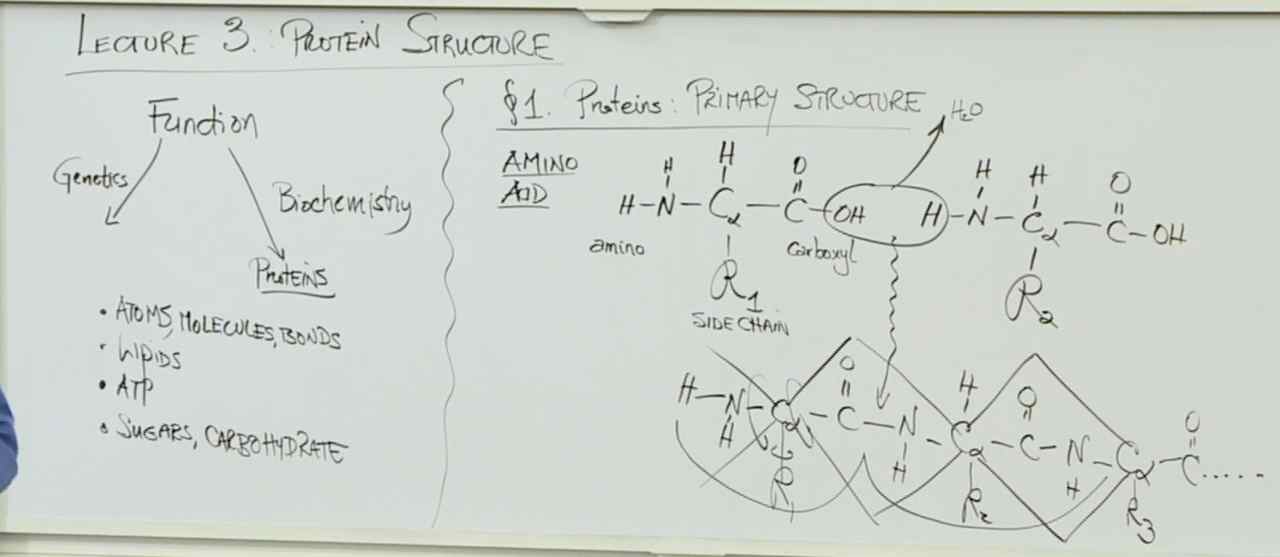 LECTURE 3. PROTEIN STRUCTURE
Function
Genetics
Biochemistry
PROTEINS
• ATOMS, MOLECULES, BONDS
• LIPIDS
• ATP
• SUGARS, CARBOHYDRATE
§1. Proteins: PRIMARY STRUCTURE
H₂O
AMINO
ACID
H H O H H O
H-N-Cα-C-OH H-N-Cα-C-OH
amino carboxyl
R₁ R₂
SIDE CHAIN
O H O O
H-N-Cα-C-N-Cα-C-N-Cα-C.....
H H H
R₁ R₂ R₃